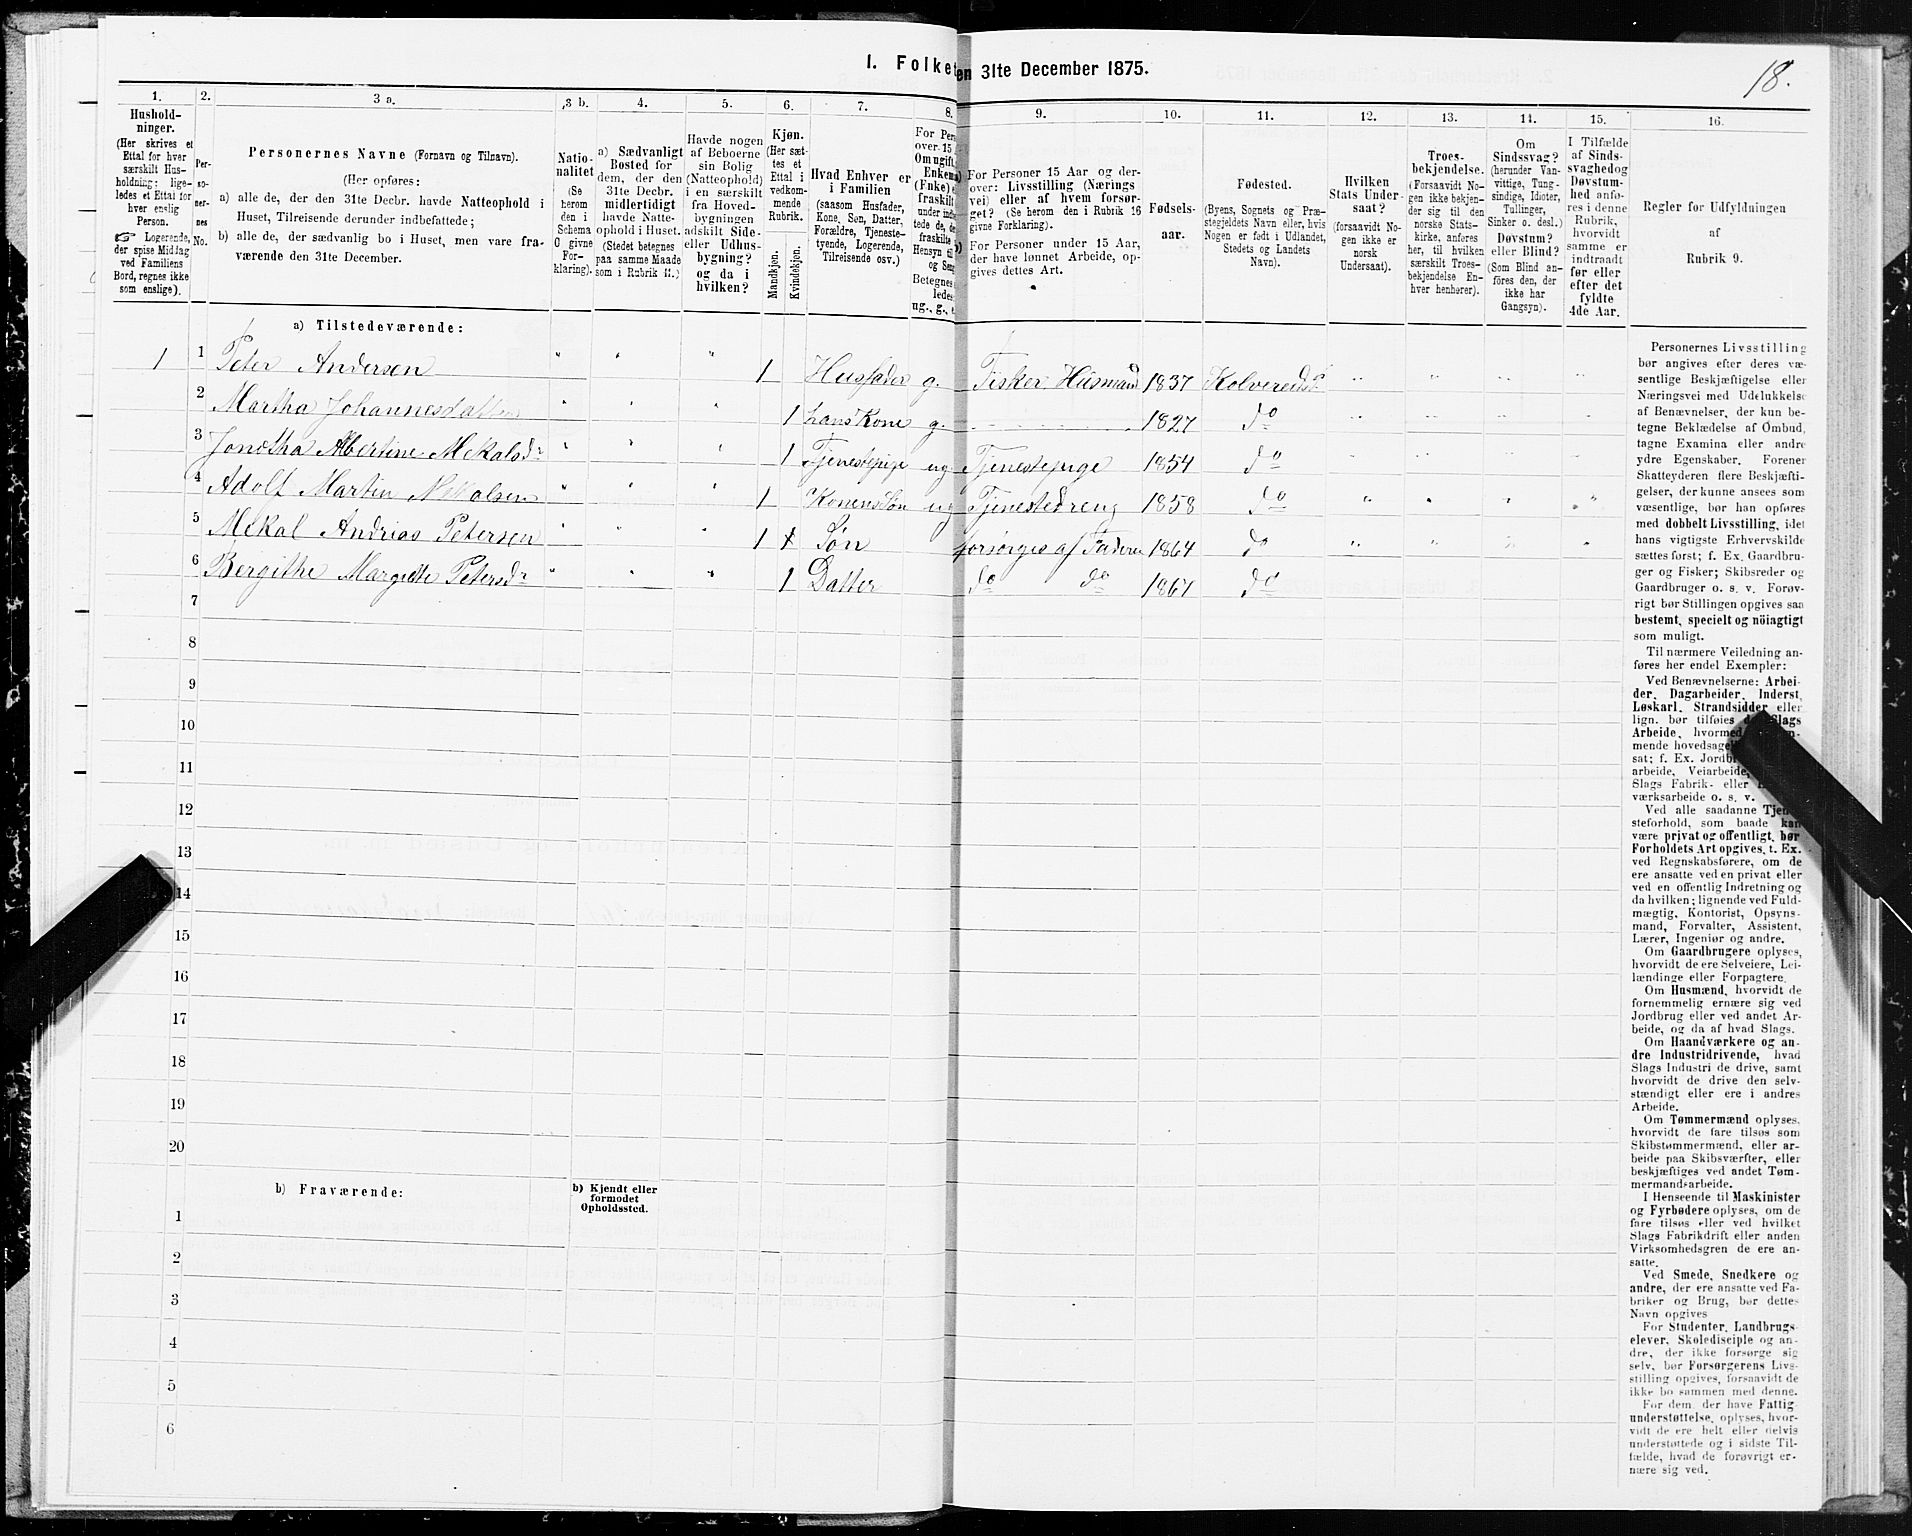 I. Folke en 31te December 1875.
18.
1.
Hushold-
ninger.
(Her skrives et
Ettal for hver
særskilt Hus-
holdning; lige-
ledes et Ettal for
hver enslig
Person.
☞ Logerende,
der spise Middag
ved Familiens
Bord, regnes ikke
som enslige).
2.
Per-
so-
ner-
nes
No.
3 a.
Personernes Navne (Fornavn og Tilnavn).
(Her opføres:
a) alle de, der den 31te Decbr. havde Natteophold i
Huset, Tilreisende derunder indbefattede;
b) alle de, der sædvanlig bo i Huset, men vare fra-
værende den 31te December.
3 b.
Natio-
nalitet
(Se
herom
den i
Schema
O givne
For-
klaring).
4.
a) Sædvanligt
Bosted for
dem, der den
31te Decbr.
midlertidigt
havde Natte-
ophold i Huset.
(Stedet betegnes
paa samme Maade
som i Rubrik 11.)
5.
Havde nogen
af Beboerne
sin Bolig
(Natteophold)
i en særskilt
fra Hoved-
bygningen
adskilt Side-
eller Udhus-
bygning?
og da i
hvilken?
6.
Kjøn.
(Her sæt-
tes et
Ettal i
vedkom-
mende
Rubrik.
Mandkjøn.
Kvindekjøn.
7.
Hvad Enhver er
i Familien
(saasom Husfader,
Kone, Søn, Datter,
Forældre, Tjeneste-
tyende, Logerende,
Tilreisende osv.)
8.
For Pers
over 15
Om ugift,
Enkem
(Enke) e
fraskilt
under indr
tede de,
fraskilte
Hensyn til
og Sen
Betegnes
ledes
ug., g.,
9.
For Personer 15 Aar og der-
over: Livsstilling (Nærings
vei) eller af hvem forsør-
get? (Se herom den i Rubrik 16
givne Forklaring).
For Personer under 15 Aar,
der have lønnet Arbeide, op-
gives dettes Art.
10.
Fødsels-
aar.
11.
Fødested.
(Byens, Sognets og Præ-
stegjeldets Navn eller, hvis
Nogen er født i Udlandet,
Stedets og Landets
Navn).
12.
Hvilken
Stats Under-
saat?
(forsaavidt No-
gen ikke er
norsk
Undersaat).
13.
Troes-
bekjendelse.
(Forsaavidt No-
gen ikke bekjen-
der sig til den
norske Stats-
kirke, anføres
her, til hvilken
særskilt Troes-
bekjendelse En-
hver henhører).
14.
Om
Sindssvag?
(herunder Van-
vittige, Tung-
sindige, Idioter,
Tullinger,
Sinker o. desl.)
Døvstum?
eller Blind?
(Som Blind an-
føres den, der
ikke har
Gangsyn).
15.
I Tilfælde
af Sinds-
svaghed og
Døvstum-
hed anfø-
res i denne
Rubrik,
hvorvidt
samme er
indtraadt
før eller
efter det
fyldte
4de Aar.
16.
Regler for Udfyldningen
af
Rubrik 9.
a) Tilstedeværende:
1 1 Peter Andersen " " " 1 Husfader g. Fisker Husmand 1837 Kolvereids " " " "
2 Martha Johannesdatter " " " 1 hans Kone g. 1827 do " " " "
3 Albertine Mekalsdr " " " 1 Tjenestepige ug Tjenestepige 1854 do " " " "
4 Adolf Martin " " " 1 Konens Søn ug Tjenestedreng 1858 do " " " "
5 Mekal Andrias Petersen " " " 1 Søn forsørges af Faderen 1864 do " " " "
6 Bergithe Margrethe Petersdr " " " 1 Datter do do 1867 do
7
8
9
10
11
12
13
14
15
16
17
18
19
20
b) Fraværende:
b) Kjendt eller
formodet
Opholdssted.
1
2
3
4
5
6
Personernes Livsstilling
bør angives efter deres væ-
sentlige Beskjæftigelse eller
Næringsvei med Udelukkelse
af Benævnelser, der kun be-
tegne Beklædelse af Ombud,
tagne Examina eller andre
ydre Egenskaber. Forener
Skatteyderen flere Beskjæfti-
gelser, der kunne ansees som
væsentlige, bør han opføres
med dobbelt Livsstilling, idet
hans vigtigste Erhvervskilde
sættes først; f. Ex. Gaardbru-
ger og Fisker; Skibsreder og
Gaardbruger o. s. v. Forøv-
rigt bør Stillingen opgives saa
bestemt, specielt og nöiagtigt
som muligt.
Til nærmere Veiledning an-
føres her endel Exempler:
Ved Benævnelserne: Arbei-
der, Dagarbeider, Inderst,
Løskarl, Strandsidder eller
lign. bør tilføies d Slags
Arbeide, hvormed
mende hovedsage
sat; f. Ex. Jordbr
arbeide, Veiarbeide,
Slags Fabrik- eller
værksarbeide o. s. v.
Ved alle saadanne Tjen
steforhold, som baade kan
være privat og offentligt, bør
Forholdets Art opgives, t. Ex.
ved Regnskabsførere, om de
ere ansatte ved en privat eller
ved en offentlig Indretning og
da hvilken; lignende ved Fuld-
mægtig, Kontorist, Opsyns-
mand, Forvalter, Assistent,
Lærer, Ingeniør og andre.
Om Gaardbrugere oplyses,
hvorvidt de ere Selveiere, Lei-
lændinge eller Forpagtere.
Om Husmænd, hvorvidt de
fornemmelig ernære sig ved
Jordbrug eller ved andet Ar-
beide, og da af hvad Slags.
Om Haandværkere og an-
dre Industridrivende, hvad
Slags Industri de drive, samt
hvorvidt de drive den selv-
stændigt eller ere i andres
Arbeide.
Om Tømmermænd oplyses,
hvorvidt de fare tilsøs som
Skibstømmermænd, eller ar-
beide paa Skibsværfter, eller
beskjæftiges ved andet Tøm-
mermandsarbeide.
I Henseende til Maskinister
og Fyrbødere oplyses, om de
fare tilsøs eller ved hvilket
Slags Fabrikdrift eller anden
Virksomhedsgren de ere an-
satte.
Ved Smede, Snedkere og
andre, der ere ansatte ved Fa-
briker og Brug, bør dettes
Navn opgives
For Studenter, Landbrugs-
elever, Skoledisciple og an-
dre, der ikke forsørge sig
selv, bør Forsørgerens Livs-
stilling opgives, forsaavidt de
ikke bo sammen med denne.
For dem, der have Fattig-
understøttelse, oplyses, hvor-
vidt de ere helt eller delvis
understøttede og i sidste Til-
fælde, hvad de forøvrigt er-
nære sig ved.